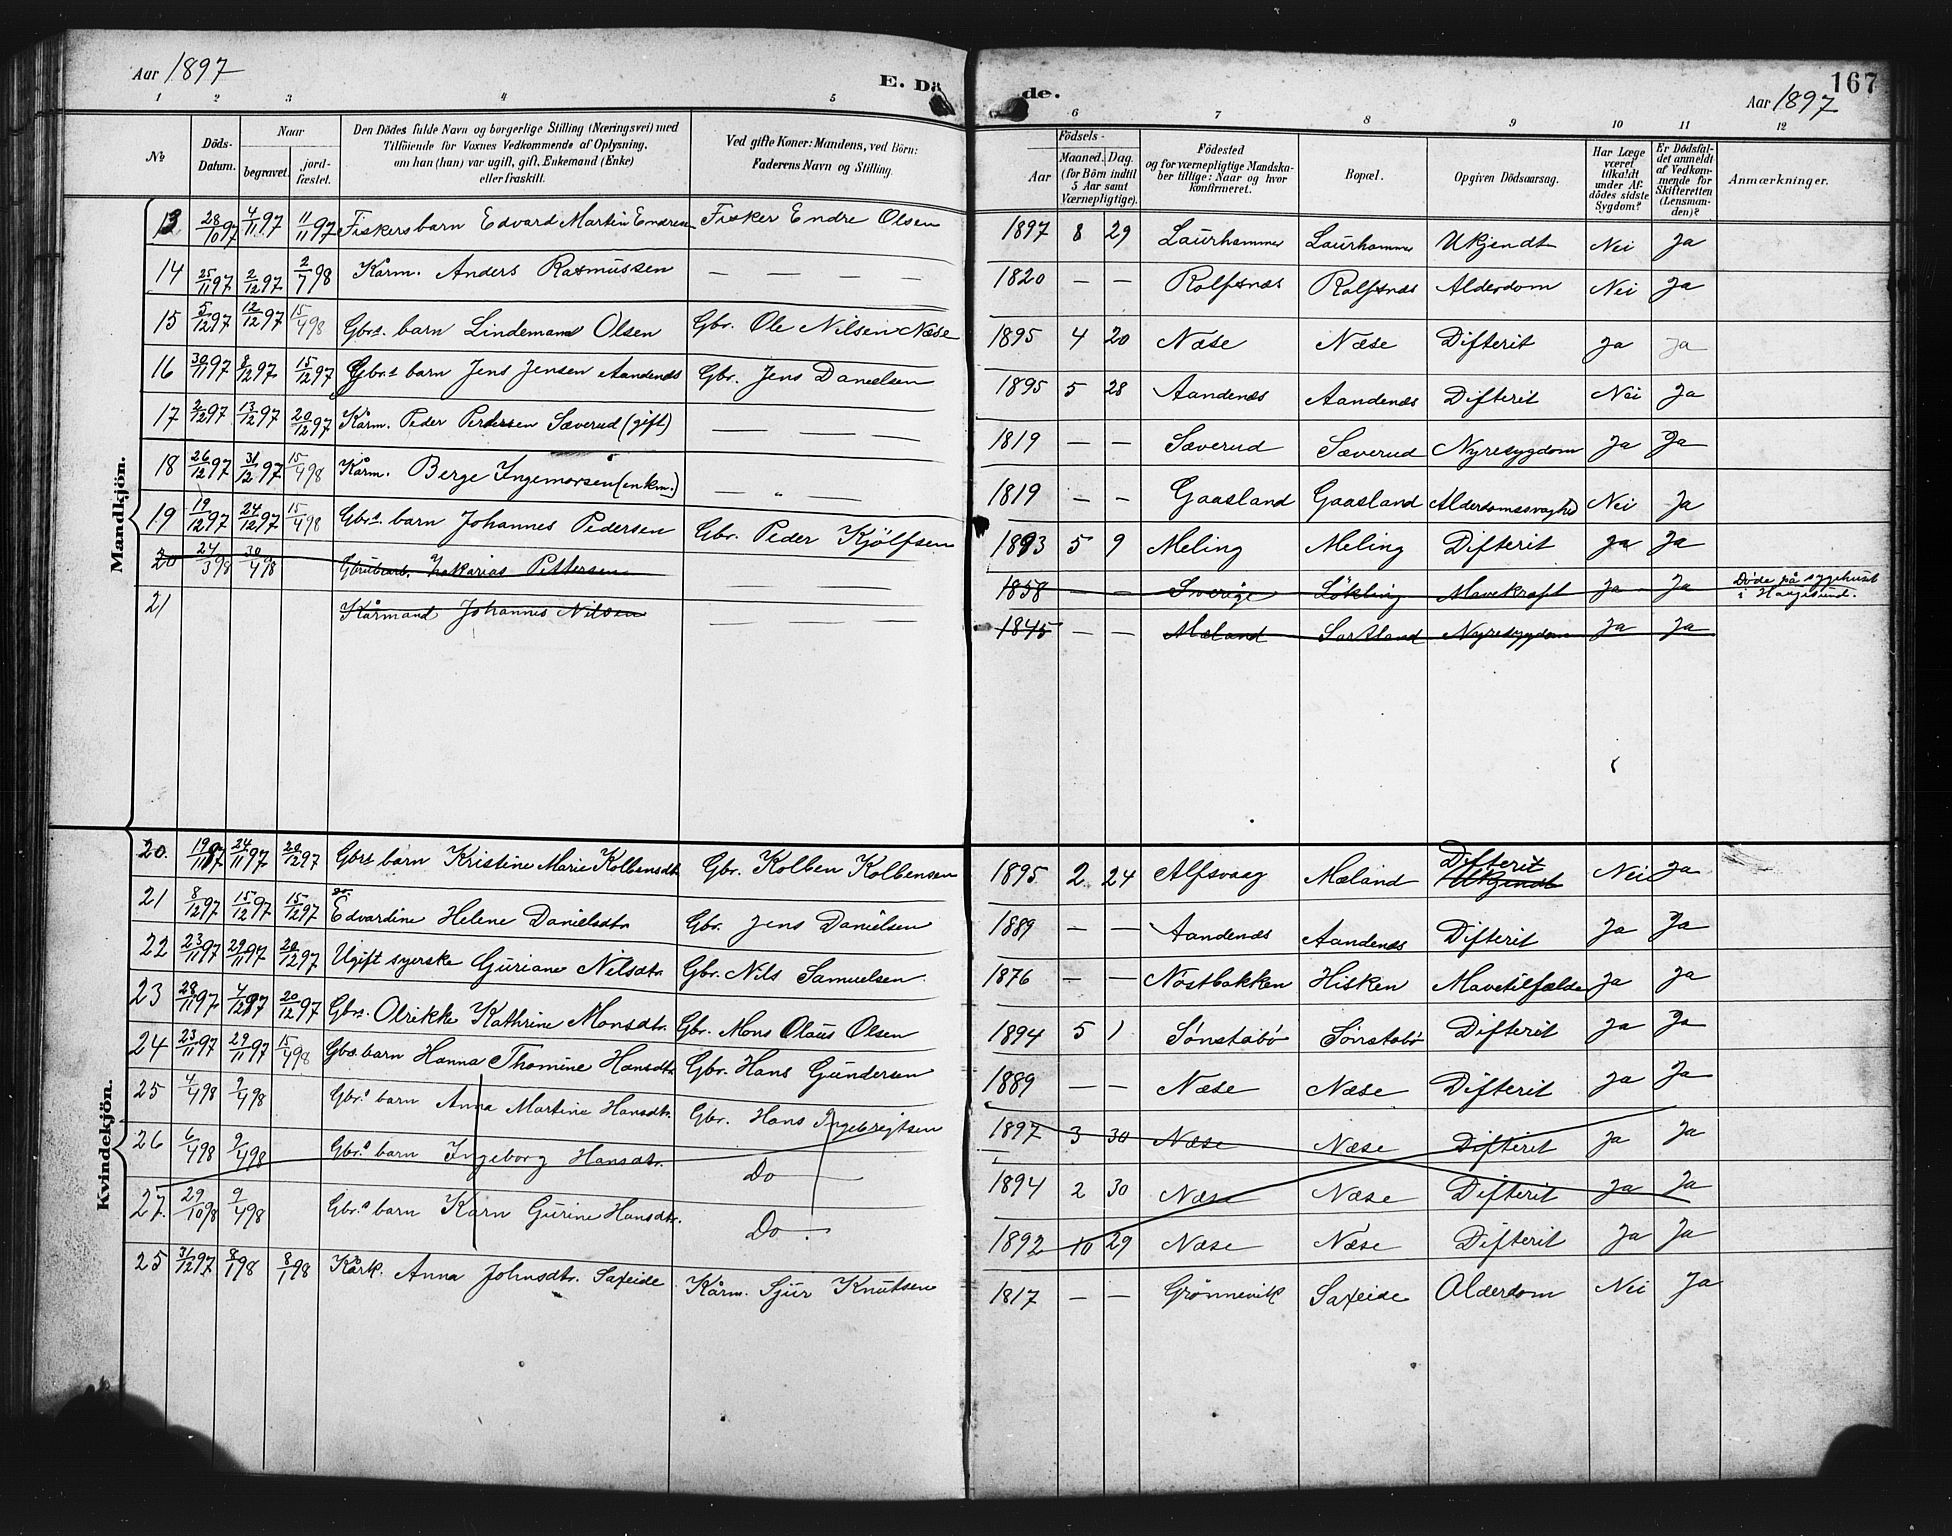 Aar 1897
E. Dä
de.
167
Aar 1897
1 2 3 4 5 6 7 8 9 10 11 12
No
Döds-Datum.
Naar
begravet.
jord-fæstet.
Den Dödes fulde Navn og borgerlige Stilling (Næringsvei) med
Tilföiende for Voxnes Vedkommende af Oplysning,
om han (hun) var ugift, gift, Enkemand (Enke)
eller fraskilt.
Ved gifte Koner: Mandens, ved Börn:
Faderens Navn og Stilling.
Födsels-
Aar
Maaned. Dag.
(for Börn indtil
5 Aar samt
Værnepligtige).
Födested
og for værnepligtige Mandska-
ber tillige: Naar og hvor
konfirmeret.
Bopæl.
Opgiven Dödsaarsag.
Har Læge
været
tilkaldt
under Af-
dödes sidste
Sygdom?
Er Dödsfal-
det anmeldt
af Vedkom-
mende for
Skifteretten
(Lensman-
den)?
Anmærkninger.
Mandkjön.
13 28/10 97 4/11 97 11/11 97 Fiskers barn Edvard Martin Endresen Fisker Endre Olsen 1897 8 29 Laurhammer Laurhammer Ukjendt Nei Ja
14 25/11 97 2/12 97 2/7 98 Kårm. Anders Rasmussen — — — 1820 — — Rolfsnæs Rolfsnæs Alderdom Nei Ja
15 5/12 97 12/12 97 15/4 98 Gbrs. barn Lindemand Olsen Gbr. Ole Nilsen Næse 1895 4 20 Næse Næse Difterit Ja Ja
16 30/11 97 8/12 97 15/12 97 Gbr.s barn Jens Jensen Aandenæs Gbr. Jens Danielsen 1895 5 28 Aandenæs Aandenæs Difterit Nei Ja
17 2/12 97 13/12 97 20/12 97 Kårm. Peder Pedersen Sæverud (gift) — — — 1819 — — Sæverud Sæverud Nyresygdom Ja Ja
18 26/12 97 31/12 97 15/4 98 Kårm. Berge Ingemorsen (enkm.) — " — 1819 — — Gaasland Gaasland Alderdomssvaghed Nei Ja
19 19/12 97 24/12 97 15/4 98 Gbrs. barn Johannes Pedersen Gbr. Peder Kjölfsen 1893 5 9 Meling Meling Difterit Ja Ja
20 24/3 98 30/4 98 Zakarias Pettersen — — — 1858 — — Sverige Lökling Mavekræft Ja Ja Döde på sygehuset
i Haugesund.
21 Kårmand Johannes Nilsen — — — 1845 — — Mæland Sortland Nyresygdom Ja Ja
Kvindekjön.
20. 19/11 97 24/11 97 20/12 97 Gbrs barn Kristine Marie Kolbensdtr. Gbr. Kolben Kolbensen 1895 2 24 Alfsvaag Mæland Difterit Ukjendt Nei Ja
21 8/12 97 15/12 97 15/12 97 Edvardine Helene Danielsdtr. Gbr. Jens Danielsen 1889 — — Aandenæs Aandenæs Difterit Ja Ja
22 23/11 97 29/11 97 20/12 97 Ugift syerske Guriane Nilsdtr. Gbr. Nils Samuelsen. 1876 — — Nøstbakken Hisken Mavetilfælde Ja Ja
23 28/11 97 4/12 97 20/12 97 Gbrs. Olrikke Kathrine Monsdtr. Gbr. Mons Olaus Olsen 1894 5 1 Sønstabø Sønstabø Difterit Ja Ja
24 23/11 97 29/11 97 15/4 98 Gbs. barn Hanna Thomine Hansdtr. Gbr. Hans Gundersen 1889 — — Næse Næse Difterit Ja Ja
25 4/4 98 9/4 98 Gbr.s barn Anna Martine Hansdtr. Gbr. Hans Ingebregtsen 1897 3 30 Næse Næse Difterit Ja Ja
26 6/4 98 9/4 98 Gbr.s barn Ingeborg Hansdtr. Do — 1894 2 30 Næse Næse Difterit Ja Ja
27. 29/10 98 9/4 98 Gbr.s barn Karn Gurine Hansdtr. Do —. 1892 10 29 Næse Næse Difterit Ja Ja
25 31/12 97 8/1 98 8/1 98 Kårk. Anna Johnsdtr. Saxeide Kårm. Sjur Knutsen 1817 — — Grønnevik Saxeide Alderdom Nei Ja